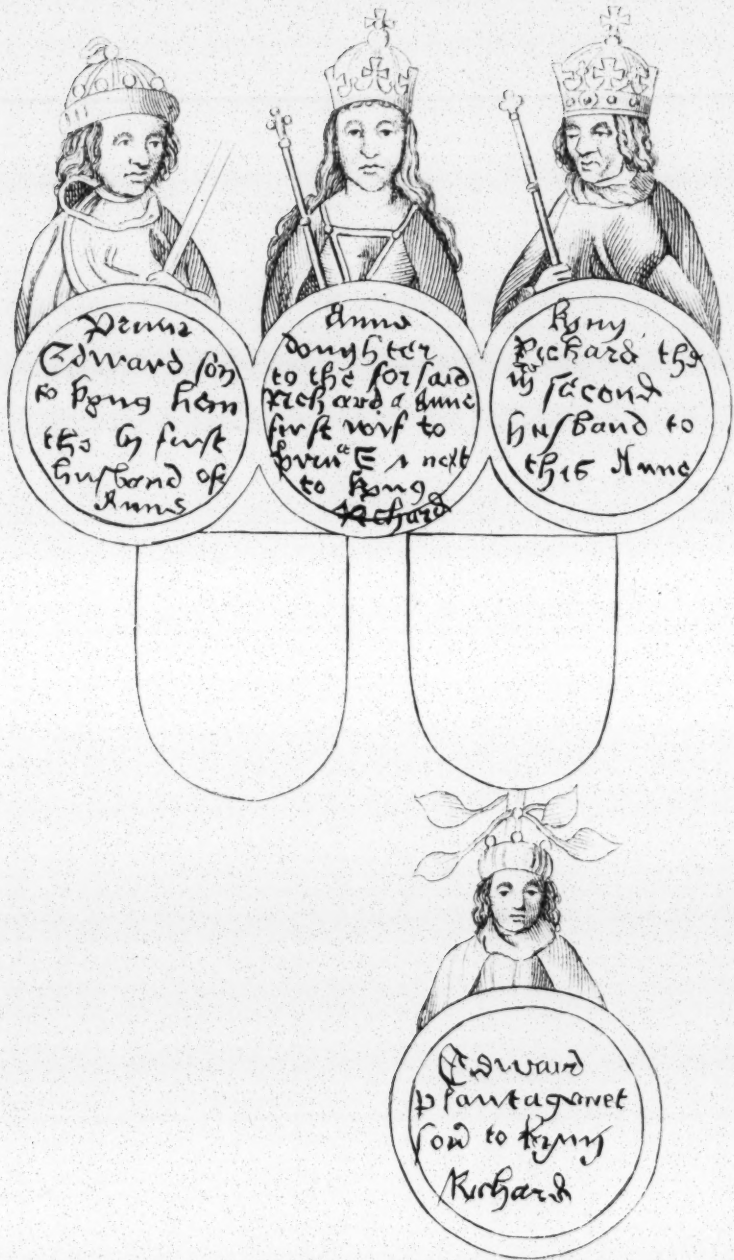 Prince
Edward son
to kyng hen
the vj first
husband of
Anne
Anne
doughter
to the forsaid
Richard & Anne
first wif to
prince E & next
to kyng
Richard
kyng
Richard the
iij second
husband to
this Anne
Edward
plantagenet
son to kyng
Richard